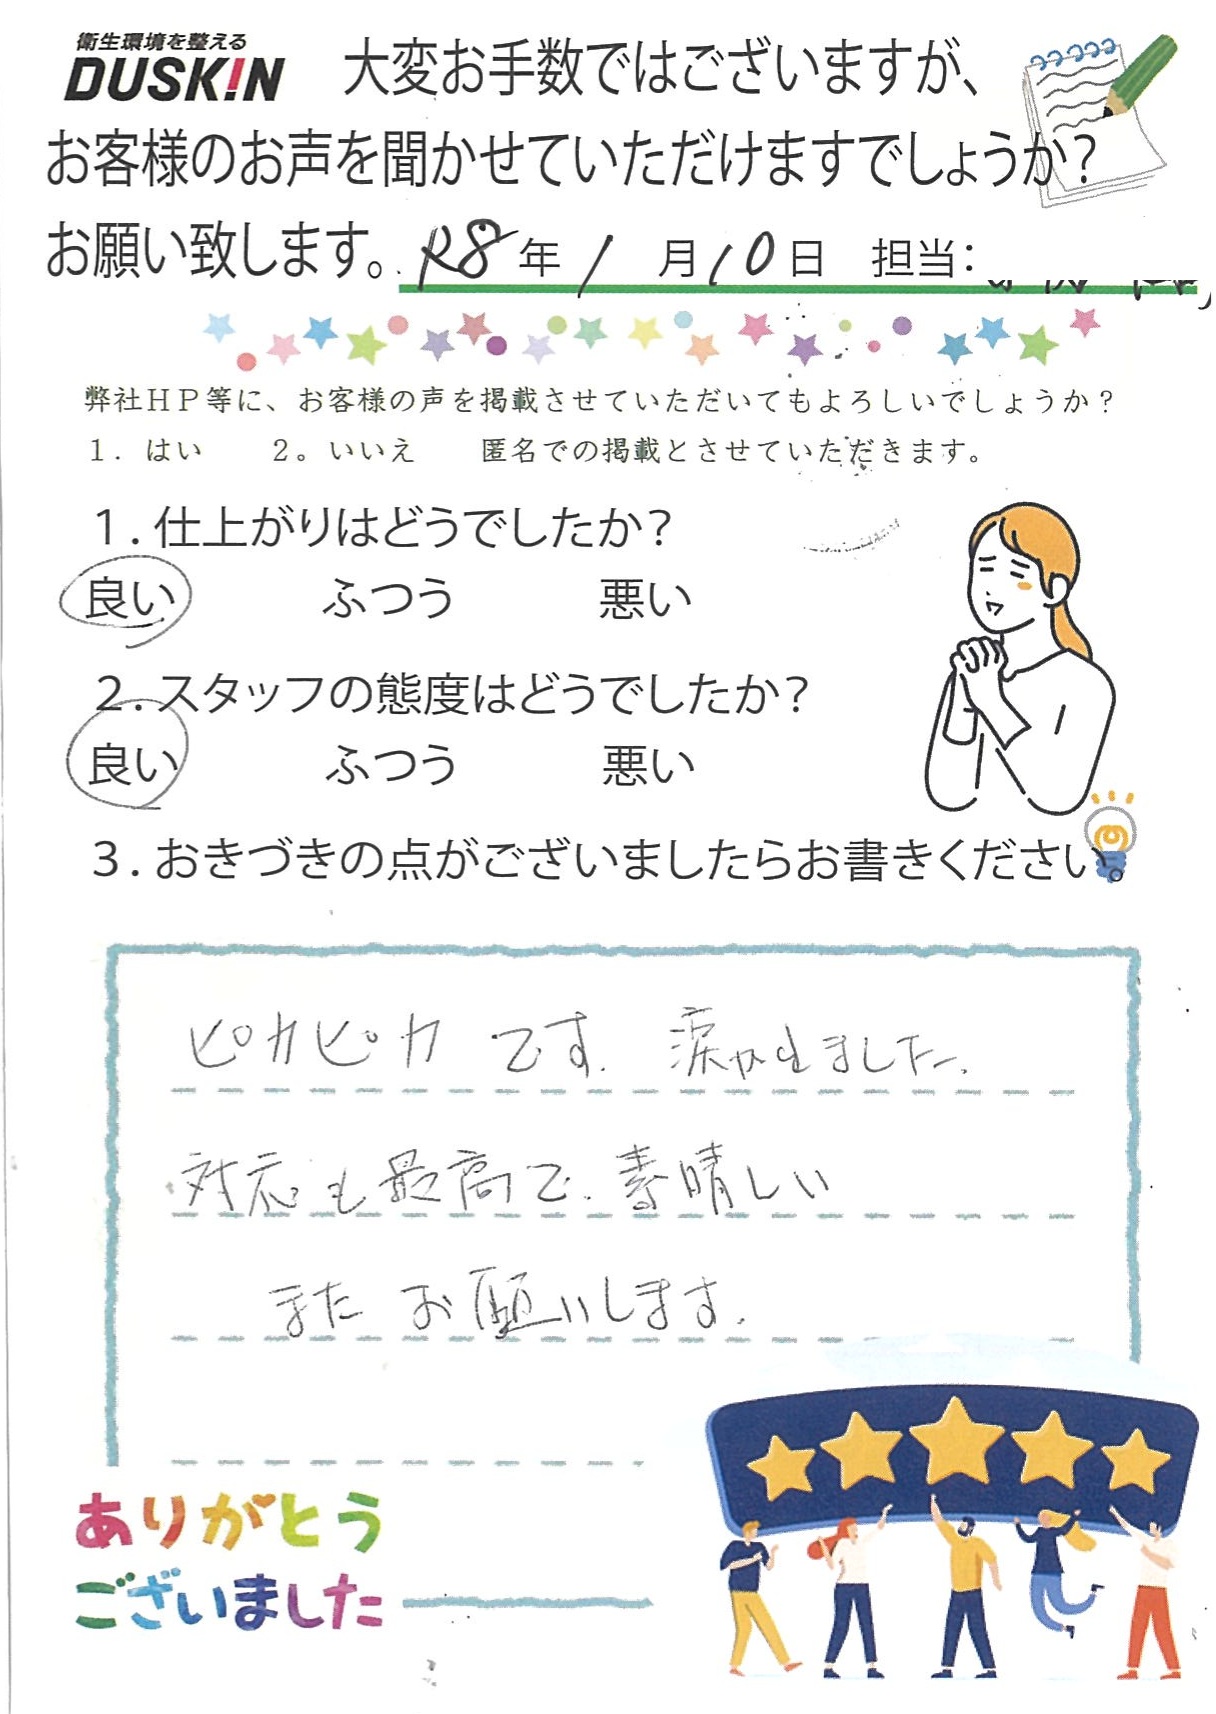 衛生環境を整える
DUSKIN
大変お手数ではございますが、
お客様のお声を聞かせていただけますでしょうか?
お願い致します。 R8年 1 月 10日 担当:
弊社HP等に、お客様の声を掲載させていただいてもよろしいでしょうか?
1. はい 2。いいえ 匿名での掲載とさせていただきます。
1.仕上がりはどうでしたか?
良い ふつう 悪い
2.スタッフの態度はどうでしたか?
良い ふつう 悪い
3.おきづきの点がございましたらお書きください。
ピカピカです. 涙が出ました.
対応も最高で.素晴しい
またお願いします.
ありがとう
ございました